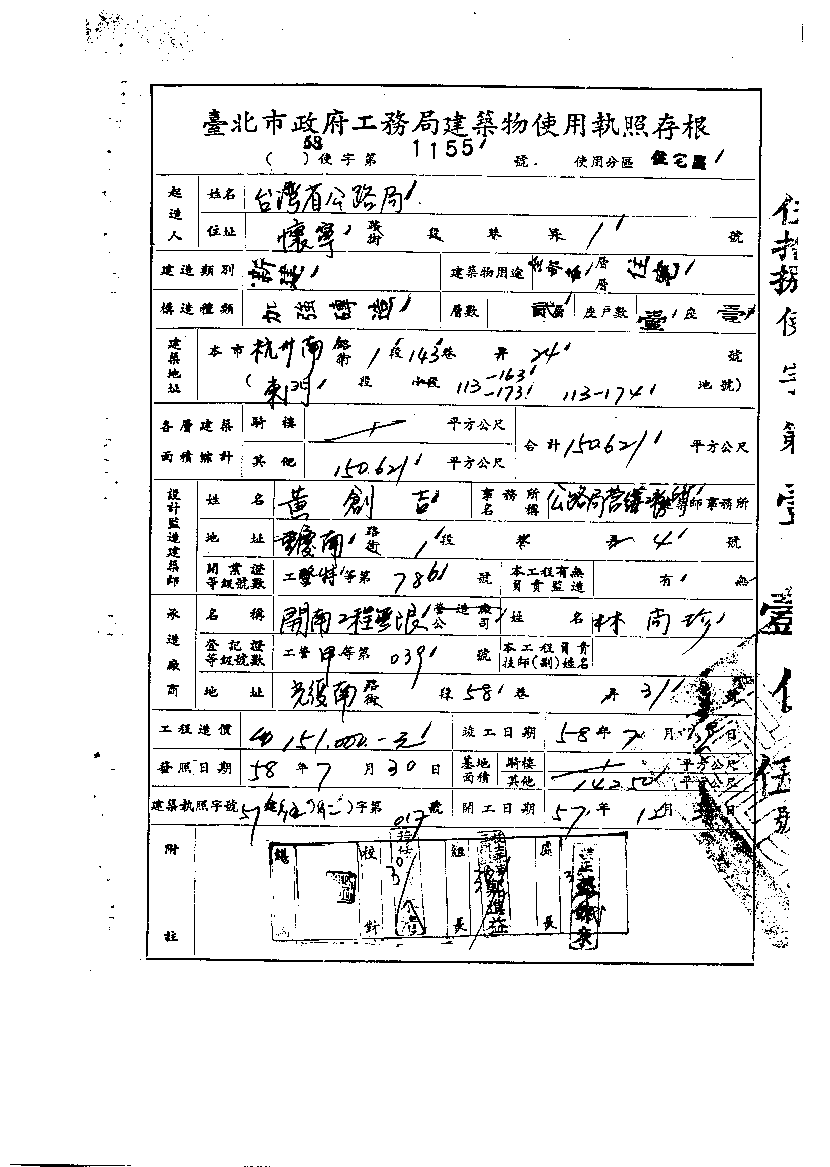 臺北市政府工務局建築物使用執照存根
(58)使字第1155號. 使用分區 住宅區
起造人 姓名 台灣省公路局
住址 懷寧 路街 段 巷 弄 1 號
建造類別 新建 建築物用途 層層 住宅
構造種類 加強磚造 層數 貳層 座戶數 壹座 壹
建築地址 本市 杭州南 路街 1段 143巷 弄 24 號
(東門 段 小段 113-163 -173 113-174 地號)
各層建築面積總計 騎樓 平方公尺 合計 150.62 平方公尺
其他 150.62 平方公尺
設計監造建築師 姓名 黃創吉 事務所名稱 公路局 建築師事務所
地址 重慶南 路街 1段 巷 弄 4 號
開業證等級號數 工 等第 786 號 本工程有無負責監造 有 無
承造廠商 名稱 開南工程 營造廠公司 姓名 林尚珍
登記證等級號數 工營甲等第 039 號 本工程負責技師(副)姓名
地址 光復南 路街 段 58巷 弄 31 號
工程造價 151.000.-元 竣工日期 58年7月 日
發照日期 58年7月30日 基地面積 騎樓 平方公尺 其他 142.50 平方公尺
建築執照字號 57 字第 017 號 開工日期 57年12月 日
附註 校對 組長 處長
使字第壹壹伍伍號